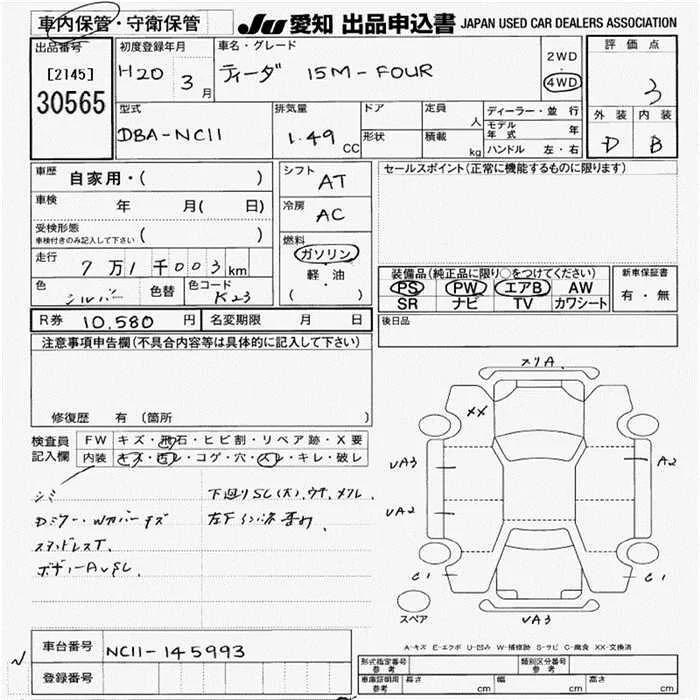 車内保管・守衛保管
JU 愛知 出品申込書 JAPAN USED CAR DEALERS ASSOCIATION
出品番号
[2145]
30565
初度登録年月
H20 3月
車名・グレード
ティーダ 15M-FOUR
2WD
・
4WD
評価点
3
外装 内装
D B
型式
DBA-NC11
排気量
1.49 CC
ドア
形状
定員 人
積載 kg
ディーラー・並行
モデル年式 年
ハンドル 左・右
車歴 自家用・( )
車検 年 月( 日)
受検形態
車検付きのみ記入して下さい ( )
走行 7万1千003km
色 シルバー 色替
色コード K23
シフト AT
冷房 AC
燃料
ガソリン
軽油
( ・ )
セールスポイント(正常に機能するものに限ります)
装備品(純正品に限り○をつけてください)
PS PW エアB AW
SR ナビ TV カワシート
新車保証書
有・無
R券 10,580 円 名変期限 月 日
後日品
注意事項申告欄(不具合内容等は具体的に記入して下さい)
修復歴 有 (箇所
検査員
記入欄
FW キズ・飛石・ヒビ割・リペア跡・X要
内装 キズ・汚レ・コゲ・穴・スレ・キレ・破レ
シミ
Dミラー・Wカバーキズ
スタッドレスT.
ボデーAựSL.
下廻りSC(大).ウチ.メクレ.
メリA.
XX
UA3
A2
UA2
C1
C1
UA3
スペア
A-キズ E-エクボ U-凹み W-補修跡 S-サビ C-腐食 XX-交換済
車台番号 NC11-145993
登録番号
形式指定番号 参考
類別区分番号 参考
車庫証明用 参考 長さ cm 幅 cm 高さ cm